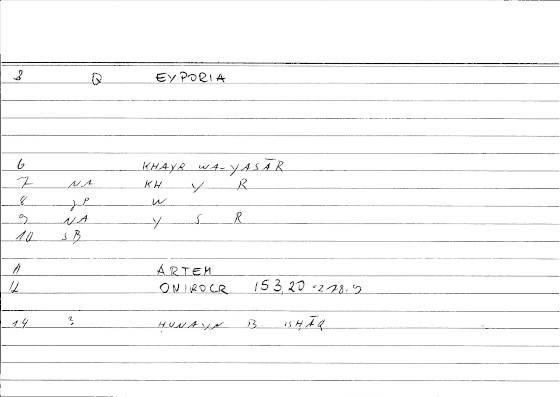 3 Q EYPORIA
6 KHAYR WA-YASĀR
7 NA KH Y R
8 JP W
9 NA Y S R
10 SB
11 ARTEM
12 ONIROCR 153,20 = 278.9
14 ? HUNAYN B. ISHĀQ